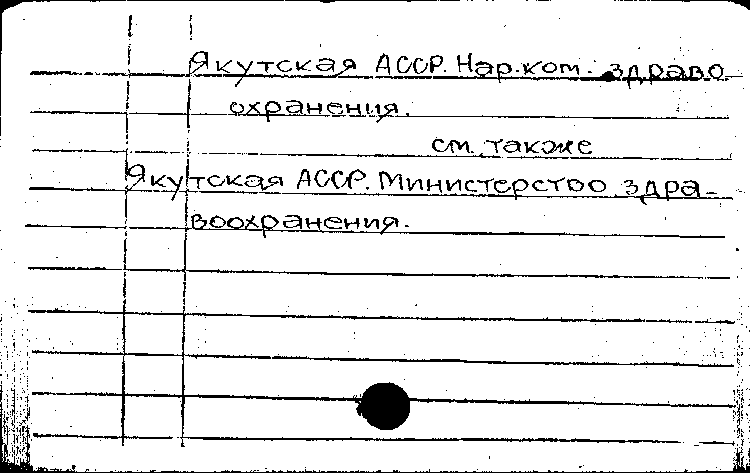 Якутская АССР. Нар.ком. здраво
охранения.
см. также
Якутская АССР. Министерство здра-
воохранения.